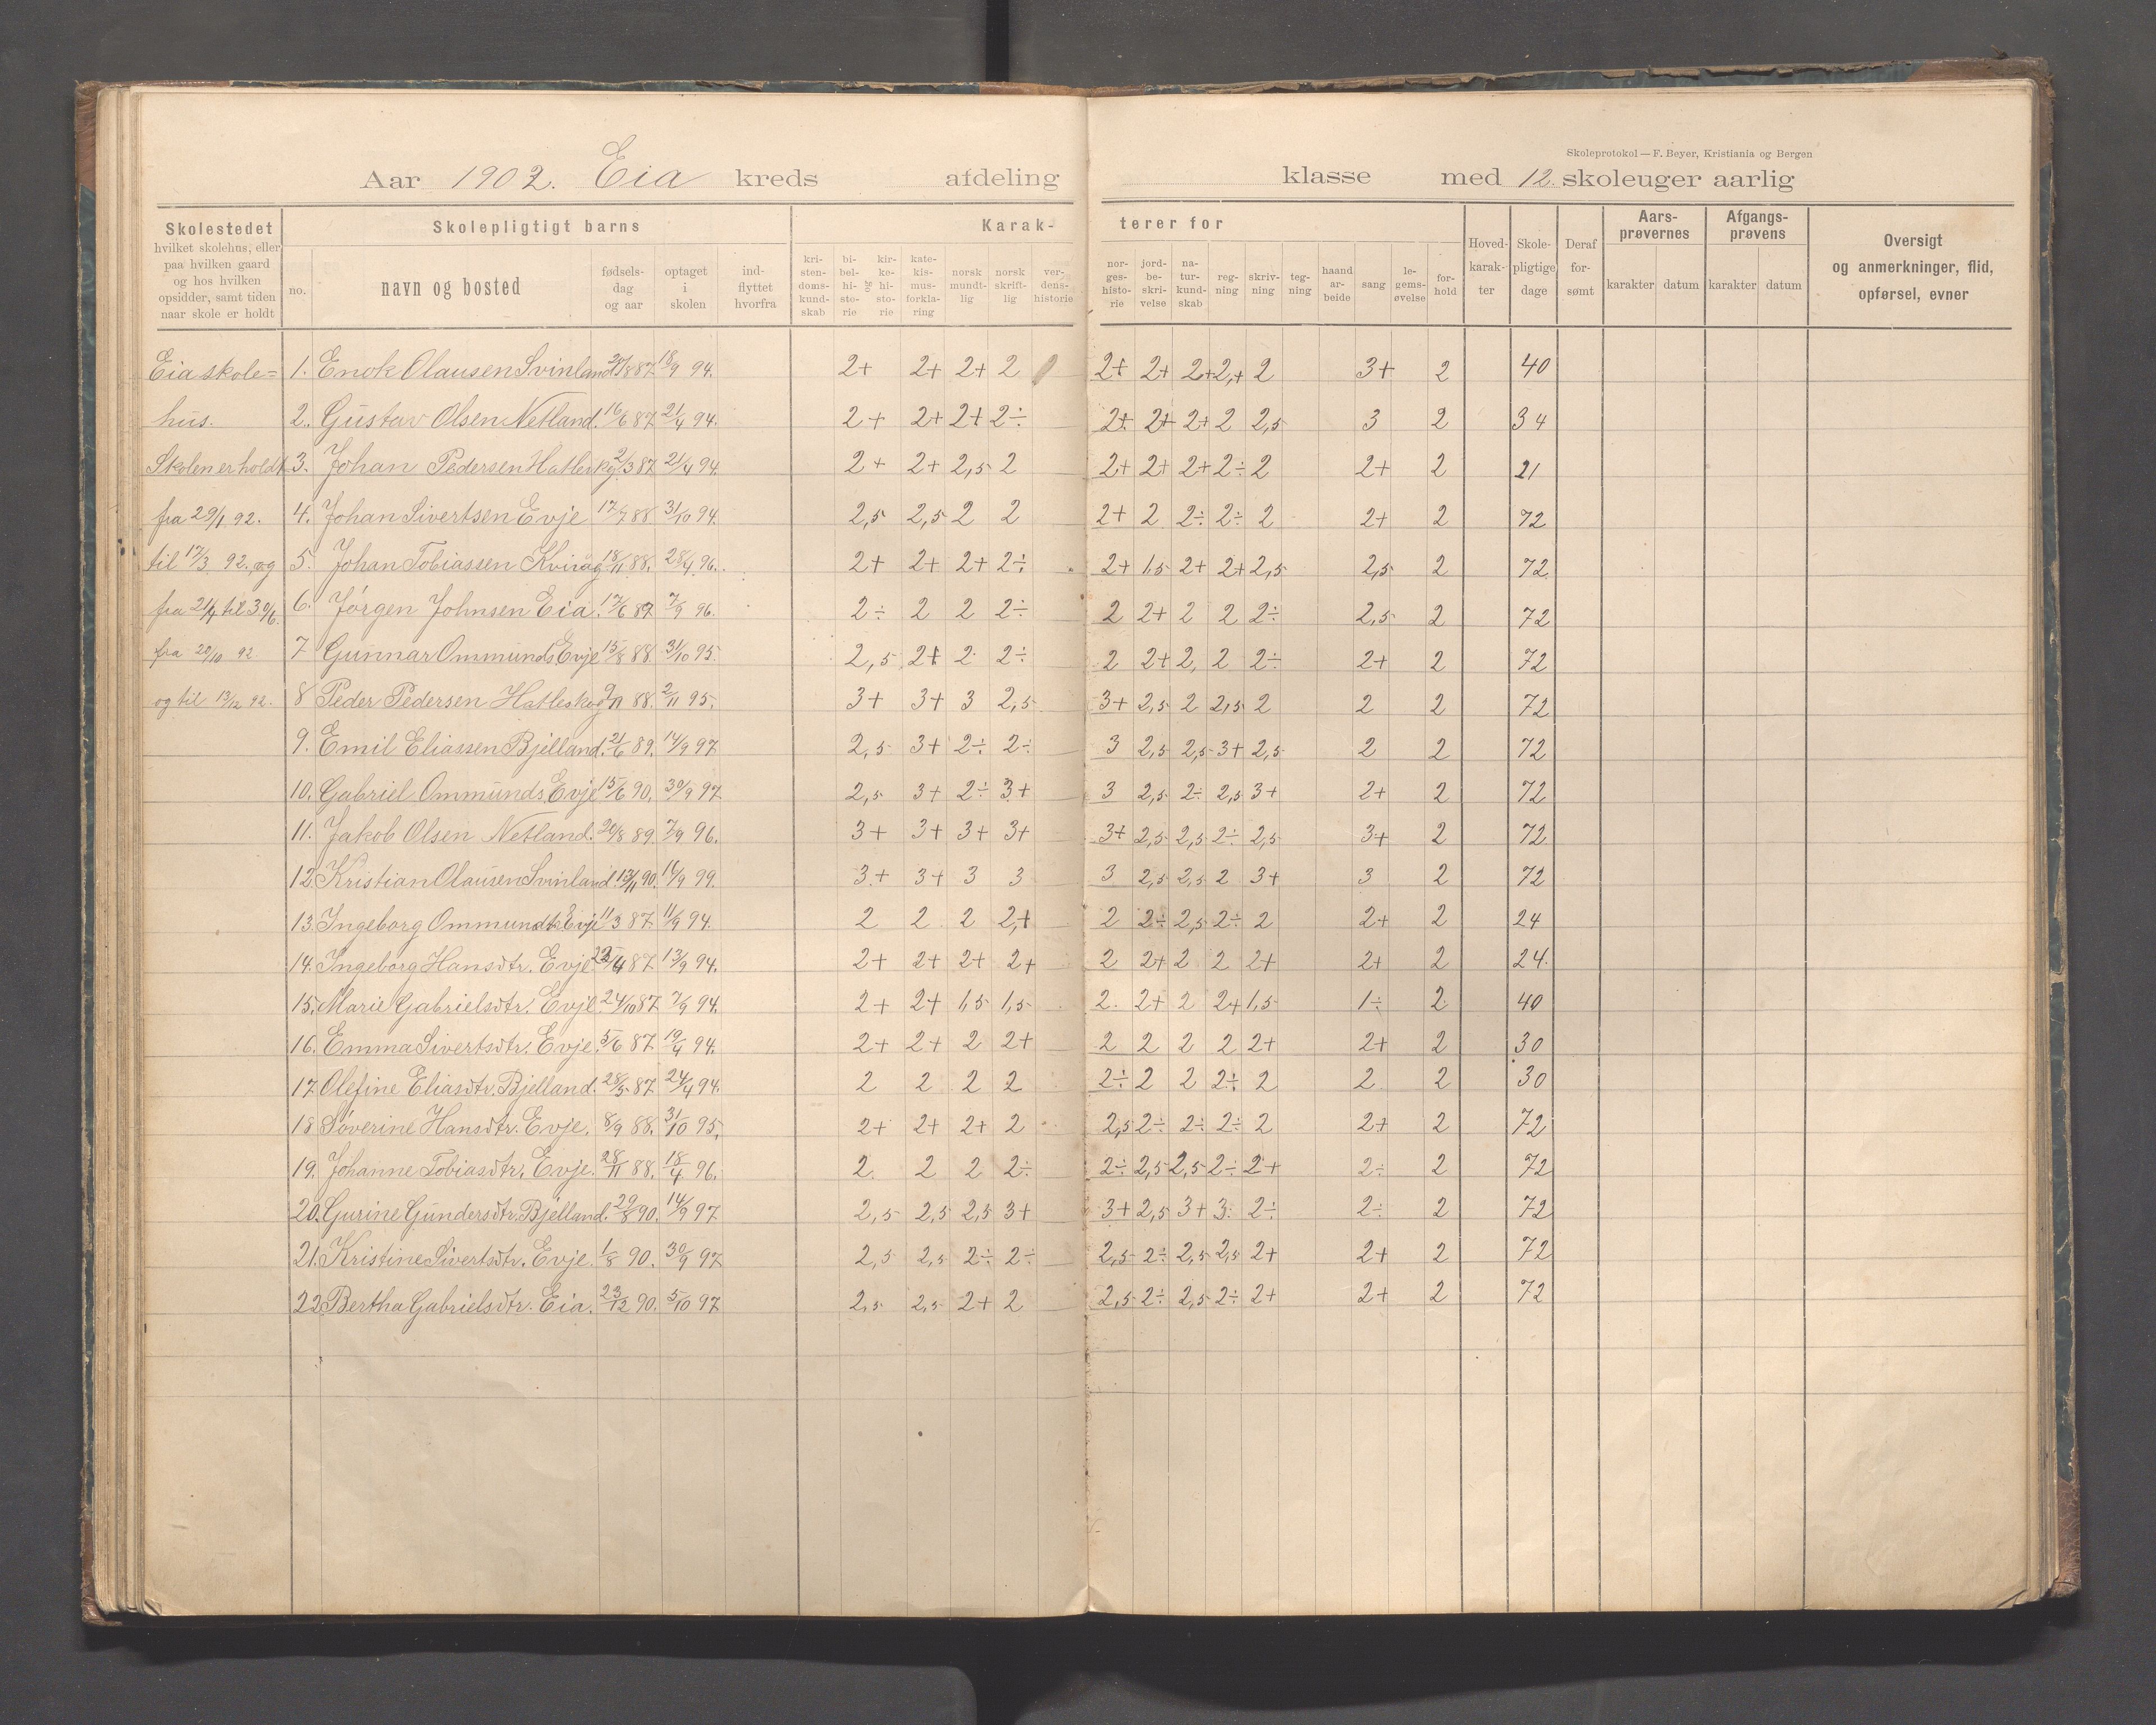 Skoleprotokol — F. Beyer, Kristiania og Bergen
Aar 1902. Eia kreds afdeling klasse med 12. skoleuger aarlig
Skolestedet hvilket skolehus, eller paa hvilken gaard og hos hvilken opsidder, samt tiden naar skole er holdt
Skolepligtigt barns
no. navn og bosted fødselsdag og aar optaget i skolen indflyttet hvorfra
Karakterer for
kristendomskundskab bibelhistorie og kirkehistorie katekismusforklaring norsk mundtlig norsk skriftlig verdenshistorie norgeshistorie jordbeskrivelse naturkundskab regning skrivning tegning haandarbeide sang legemsøvelse forhold
Hovedkarakter Skolepligtige dage Deraf forsømt
Aarsprøvernes karakter datum
Afgangsprøvens karakter datum
Oversigt og anmerkninger, flid, opførsel, evner
Eia skole= 1. Enok Olausen Svinland 21/8 87 18/9 94. 2+ 2+ 2+ 2 2+ 2+ 2+ 2,+ 2 3+ 2 40
hus. 2. Gustav Olsen Netland. 16/6 87 21/4 94. 2+ 2+ 2+ 2÷ 2+ 2+ 2+ 2 2,5 3 2 34
Skolen er holdt 3. Johan Pedersen Hatleskog 2/3 87 21/4 94. 2+ 2+ 2,5 2 2+ 2+ 2+ 2÷ 2 2+ 2 21
fra 29/1 92. 4. Johan Sivertsen Evje 17/7 88 31/10 94. 2,5 2,5 2 2 2+ 2 2÷ 2÷ 2 2+ 2 72
til 17/3 92., og 5. Johan Tobiassen 18/11 88. 28/4 96. 2+ 2+ 2+ 2÷ 2+ 1,5 2+ 2+ 2,5 2,5 2 72
fra 21/4 til 30/6. 6. Jørgen Johnsen Eia. 17/6 89. 7/9 96. 2÷ 2 2 2÷ 2 2+ 2 2 2÷ 2,5 2 72
fra 20/10 92 7 Gunnar Ommunds Evje 15/8 88. 31/10 95. 2,5 2+ 2 2÷ 2 2+ 2, 2 2÷ 2+ 2 72
og til 13/12 92. 8 Peder Pedersen Hatleskog 9/11 88. 2/11 95. 3+ 3+ 3 2,5 3+ 2,5 2 2,5 2 2 2 72
9. Emil Eliassen Bjelland. 21/6 89. 14/9 97 2,5 3+ 2÷ 2÷ 3 2,5 2,5 3+ 2,5 2 2 72
10. Gabriel Ommunds Evje 15/6 90. 30/9 97 2,5 3+ 2÷ 3+ 3 2,5 2÷ 2,5 3+ 2+ 2 72
11. Jakob Olsen Netland. 20/8 89. 7/9 96. 3+ 3+ 3+ 3+ 3+ 2,5 2,5 2÷ 2,5 3+ 2 72
12. Kristian Olausen Svinland 13/11 90. 16/9 99. 3+ 3+ 3 3 3 2,5 2,5 2 3+ 3 2 72
13. Ingeborg Ommundtr. Evje 11/3 87. 11/9 94. 2 2 2 2,+ 2 2÷ 2,5 2÷ 2 2+ 2 24
14. Ingeborg Hansdtr. Evje 87 13/9 94. 2+ 2+ 2+ 2+ 2 2+ 2 2 2+ 2+ 2 24
15. Marie Gabrielsdtr. Evje. 24/10 87 7/9 94. 2+ 2+ 1,5 1,5 2. 2+ 2 2+ 1,5 1÷ 2 40
16. Emma Sivertsdtr. Evje. 5/6 87 19/4 94. 2+ 2+ 2 2+ 2 2 2 2 2+ 2+ 2 30
17. Olefine Eliasdtr. Bjelland. 28/5 87. 24/4 94. 2 2 2 2 2÷ 2 2 2÷ 2 2 2 30
18 Søverine Hansdtr. Evje. 8/9 88. 31/10 95. 2+ 2+ 2+ 2 2,5 2÷ 2÷ 2÷ 2 2+ 2 72
19. Johanne Tobiasdtr. Evje. 28/11 88. 18/4 96. 2. 2 2 2÷ 2÷ 2,5 2,5 2÷ 2+ 2÷ 2 72
20. Gurine Gundersdtr. Bjelland. 29/8 90. 14/9 97 2,5 2,5 2,5 3+ 3+ 2,5 3+ 3. 2÷ 2÷ 2 72
21. Kristine Sivertsdtr. Evje. 1/8 90. 30/9 97 2,5 2,5 2÷ 2÷ 2,5 2÷ 2,5 2,5 2+ 2+ 2 72
22. Bertha Gabrielsdtr. Eia. 23/12 90. 5/10 97 2,5 2,5 2+ 2 2,5 2÷ 2,5 2÷ 2+ 2+ 2 72